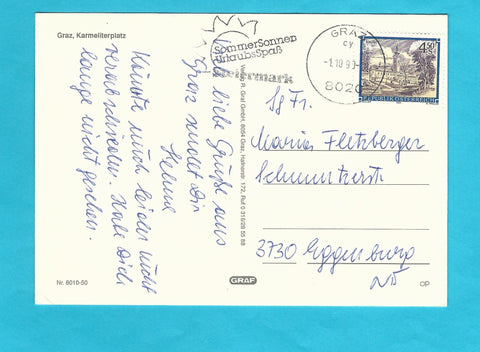 Graz, Karmeliterplatz
SommerSonnen
UrlaubsSpaß
Steiermark
GRAZ
cy
-1.10.99-
8020
4.50
REPUBLIK ÖSTERREICH
Viele liebe Grüße aus
Graz sendet Dir
Helene
Konnte mich leider nicht
verabschieden. Habe Dich
lange nicht gesehen.
Verlag R. Graf GmbH, 8054 Graz, 172, Ruf 0 316/28 55 88
Sg Fr.
Maria Fletzberger
3730 Eggenburg
NÖ
Nr. 8010-50
GRAF
OP